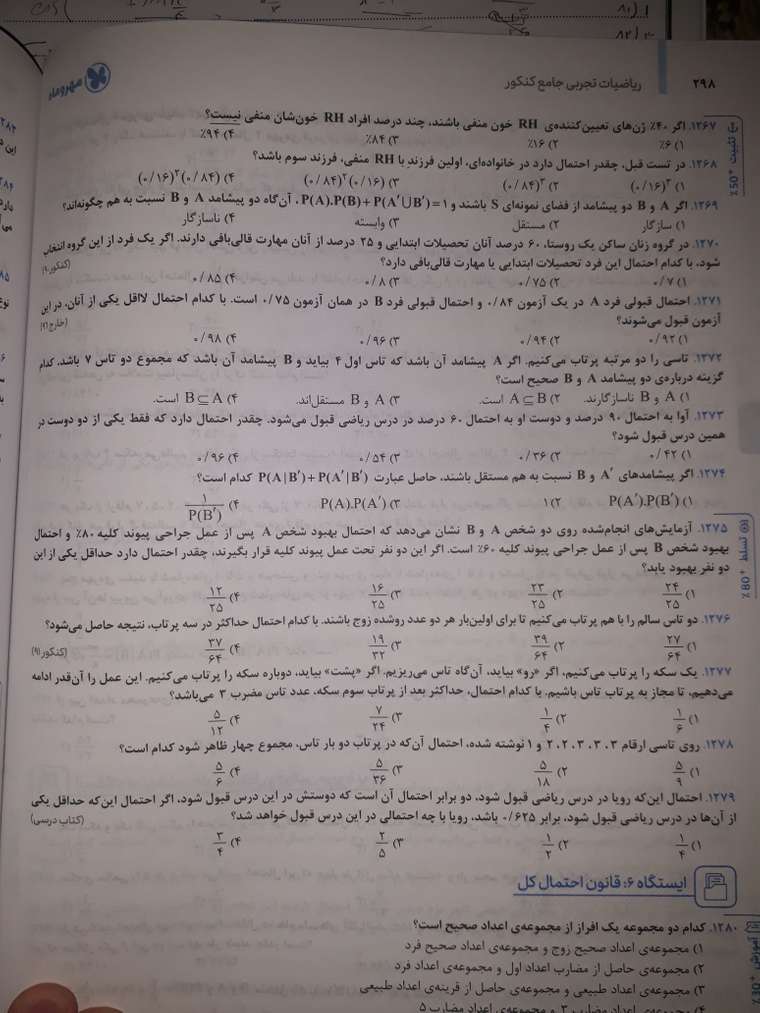 ۲۹۸ ریاضیات تجربی جامع کنکور مهروماه
تثبیت +۵۰٪
۱۲۶۷. اگر ۴۰٪ ژن‌های تعیین‌کننده‌ی RH خون منفی باشند، چند درصد افراد RH خون‌شان منفی نیست؟
۱) ۶٪ ۲) ۱۶٪ ۳) ۸۴٪ ۴) ۹۴٪
۱۲۶۸. در تست قبل، چقدر احتمال دارد در خانواده‌ای، اولین فرزند با RH منفی، فرزند سوم باشد؟
۱) (۰/۱۶)^۳ ۲) (۰/۸۴)^۳ ۳) (۰/۱۶)(۰/۸۴)^۲ ۴) (۰/۸۴)(۰/۱۶)^۲
۱۲۶۹. اگر A و B دو پیشامد از فضای نمونه‌ای S باشند و P(A).P(B)+P(A′∪B′)=۱، آن‌گاه دو پیشامد A و B نسبت به هم چگونه‌اند؟
۱) سازگار ۲) مستقل ۳) وابسته ۴) ناسازگار
۱۲۷۰. در گروه زنان ساکن یک روستا، ۶۰ درصد آنان تحصیلات ابتدایی و ۲۵ درصد از آنان مهارت قالی‌بافی دارند. اگر یک فرد از این گروه انتخاب
شود، با کدام احتمال این فرد تحصیلات ابتدایی یا مهارت قالی‌بافی دارد؟
۱) ۰/۷ ۲) ۰/۷۵ ۳) ۰/۸ ۴) ۰/۸۵
۱۲۷۱. احتمال قبولی فرد A در یک آزمون ۰/۸۴ و احتمال قبولی فرد B در همان آزمون ۰/۷۵ است. با کدام احتمال لااقل یکی از آنان، در این
آزمون قبول می‌شوند؟
۱) ۰/۹۲ ۲) ۰/۹۴ ۳) ۰/۹۶ ۴) ۰/۹۸
۱۲۷۲. تاسی را دو مرتبه پرتاب می‌کنیم. اگر A پیشامد آن باشد که تاس اول ۴ بیاید و B پیشامد آن باشد که مجموع دو تاس ۷ باشد، کدام
گزینه درباره‌ی دو پیشامد A و B صحیح است؟
۱) A و B ناسازگارند. ۲) A⊆B است. ۳) A و B مستقل‌اند. ۴) B⊆A است.
۱۲۷۳. آوا به احتمال ۹۰ درصد و دوست او به احتمال ۶۰ درصد در درس ریاضی قبول می‌شود. چقدر احتمال دارد که فقط یکی از دو دوست در
همین درس قبول شود؟
۱) ۰/۴۲ ۲) ۰/۳۶ ۳) ۰/۵۴ ۴) ۰/۹۶
۱۲۷۴. اگر پیشامدهای A′ و B نسبت به هم مستقل باشند، حاصل عبارت P(A|B′)+P(A′|B′) کدام است؟
۱) P(A′).P(B′) ۲) ۱ ۳) P(A).P(A′) ۴) ۱/P(B′)
تسلط +۸۰٪
۱۲۷۵. آزمایش‌های انجام‌شده روی دو شخص A و B نشان می‌دهد که احتمال بهبود شخص A پس از عمل جراحی پیوند کلیه ۸۰٪ و احتمال
بهبود شخص B پس از عمل جراحی پیوند کلیه ۶۰٪ است. اگر این دو نفر تحت عمل پیوند کلیه قرار بگیرند، چقدر احتمال دارد حداقل یکی از این
دو نفر بهبود یابد؟
۱) ۲۴/۲۵ ۲) ۲۳/۲۵ ۳) ۱۶/۲۵ ۴) ۱۲/۲۵
۱۲۷۶. دو تاس سالم را با هم پرتاب می‌کنیم تا برای اولین‌بار هر دو عدد روشده زوج باشند. با کدام احتمال حداکثر در سه پرتاب، نتیجه حاصل می‌شود؟
۱) ۲۷/۶۴ ۲) ۳۹/۶۴ ۳) ۱۹/۳۲ ۴) ۳۷/۶۴ (کنکور ۹۱)
۱۲۷۷. یک سکه را پرتاب می‌کنیم، اگر «رو» بیاید، آن‌گاه تاس می‌ریزیم. اگر «پشت» بیاید، دوباره سکه را پرتاب می‌کنیم. این عمل را آن‌قدر ادامه
می‌دهیم، تا مجاز به پرتاب تاس باشیم. با کدام احتمال، حداکثر بعد از پرتاب سوم سکه، عدد تاس مضرب ۳ می‌باشد؟
۱) ۱/۶ ۲) ۱/۴ ۳) ۷/۲۴ ۴) ۵/۱۲
۱۲۷۸. روی تاسی ارقام ۳، ۳، ۳، ۲، ۲ و ۱ نوشته شده، احتمال آن‌که در پرتاب دو بار تاس، مجموع چهار ظاهر شود کدام است؟
۱) ۵/۹ ۲) ۵/۱۸ ۳) ۵/۳۶ ۴) ۵/۶
۱۲۷۹. احتمال این‌که رویا در درس ریاضی قبول شود، دو برابر احتمال آن است که دوستش در این درس قبول شود، اگر احتمال این‌که حداقل یکی
از آن‌ها در درس ریاضی قبول شود، برابر ۰/۶۲۵ باشد، رویا با چه احتمالی در این درس قبول خواهد شد؟ (کتاب درسی)
۱) ۱/۴ ۲) ۱/۲ ۳) ۲/۵ ۴) ۳/۴
ایستگاه ۶: قانون احتمال کل
آموزش +۳۰٪
۱۲۸۰. کدام دو مجموعه یک افراز از مجموعه‌ی اعداد صحیح است؟
۱) مجموعه‌ی اعداد صحیح زوج و مجموعه‌ی اعداد صحیح فرد
۲) مجموعه‌ی حاصل از مضارب اعداد اول و مجموعه‌ی اعداد فرد
۳) مجموعه‌ی اعداد طبیعی و مجموعه‌ی حاصل از قرینه‌ی اعداد طبیعی
۴) مجموعه‌ی اعداد مضارب ۳ و مجموعه‌ی اعداد مضارب ۵